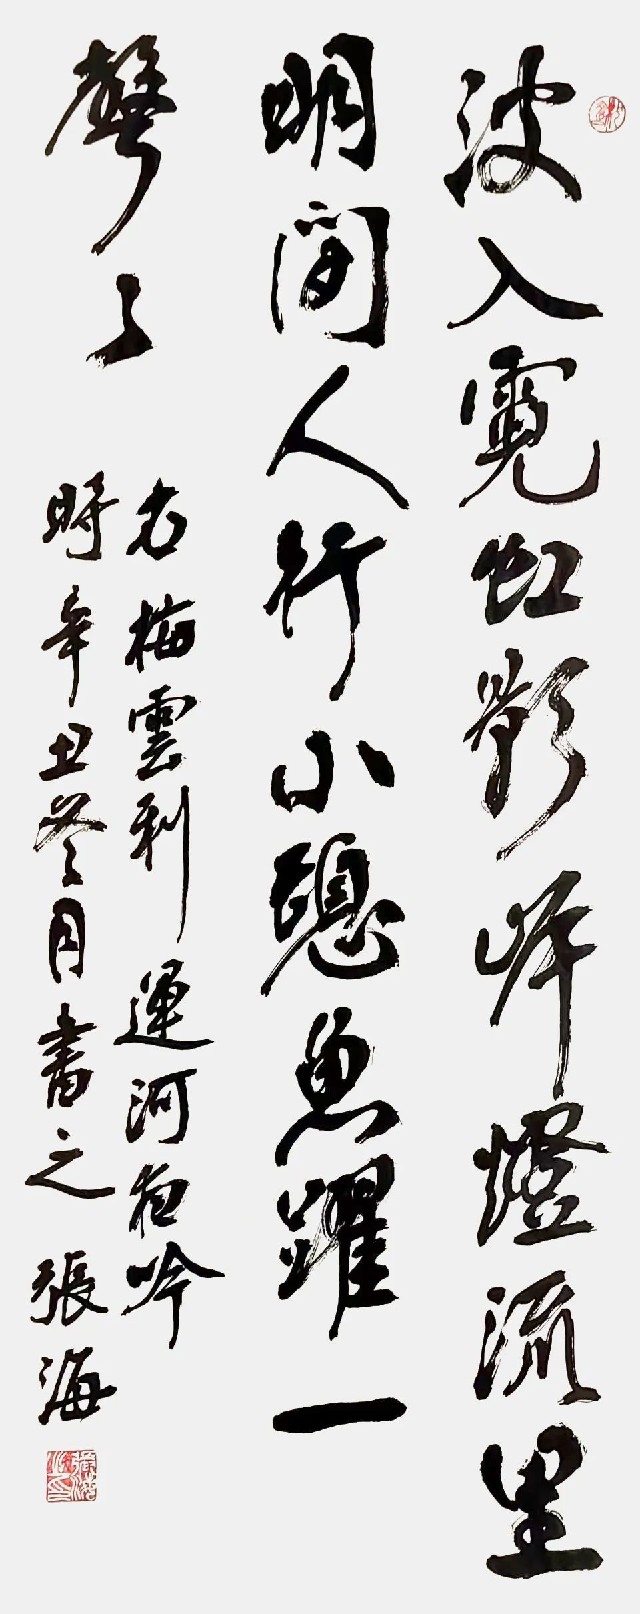 波入霓虹影岸燈流里
明閒人行小憩魚躍一
聲聲
右梅雲利運河夜吟
時辛丑冬月書之 張海